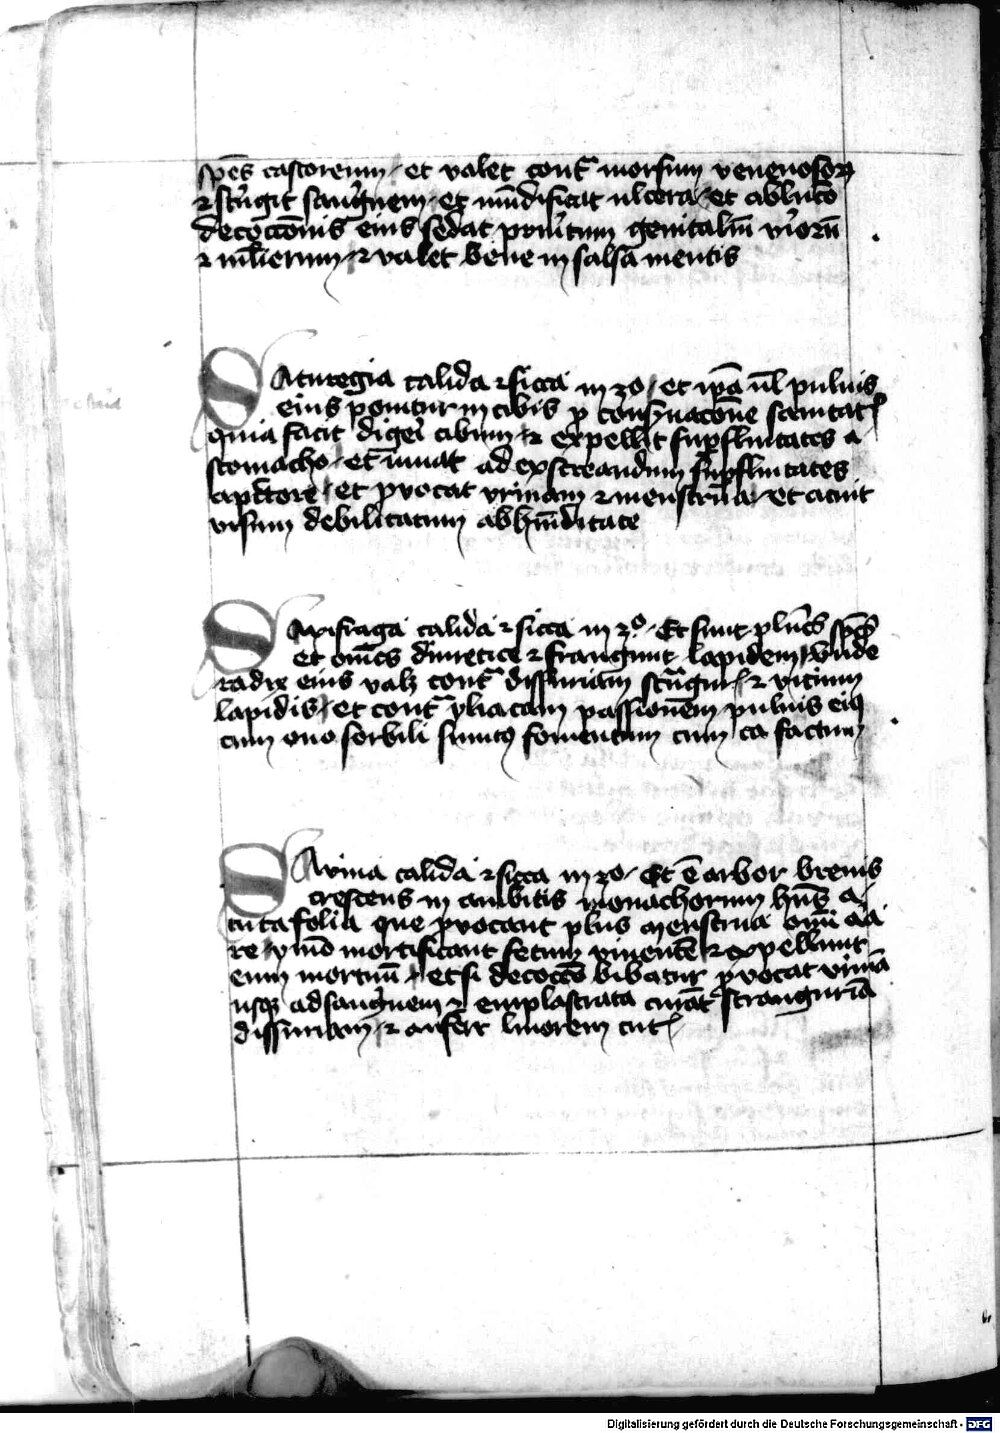 sp̄es castoreum et valet cont̄ morsum venenosoꝝ
⁊ st̄ngit sangnem et mūdificat ulcera et ablucō
decoccōnis eius sedat pruritum genitaliū viroꝝ
⁊ mlierum ⁊ valet bene in salsa mentis
Saturegia calida ⁊ sicca in 3o et ip̄a ul puluis
eius ponitur in cibis p̱ conẜuacōne sanitat
quia facit digeī cibum ⁊ expellit suꝑfluitates a
stomacho et iuuat ad exscreandum suꝑfluitates
a pectore et ꝓvocat urinam ⁊ menstrua et acuit
visum debilitatum ab hūiditate
Saxifraga calida ⁊ sicca in 3o Et sunt plūes sp̄es
et om̄es diuretice ⁊ frangunt lapidem unde
radix eius valꝫ cont̄ dissuriam st̄nguī ⁊ vicium
lapidis et cont̄ yliacam passionem puluis eiꝰ
cum ouo sorbili sumtꝰ fomentum cum ea factum
Savina calida ⁊ sicca in 3o Et ē arbor brevis
crescens in ambitis monachorum hn̄s a
cuta folia que ꝓvocant plus menstrua om̄i aa
re ymo mortificant fetum viventē ⁊ expellunt
eum mortuū et si decoccō bibatur ꝓvocat urinā
usqꝫ ad sangnem ⁊ emplastrata curāt stranguriā
dissuriam ⁊ aufert livorem cut
Digitalisierung gefördert durch die Deutsche Forschungsgemeinschaft - DFG